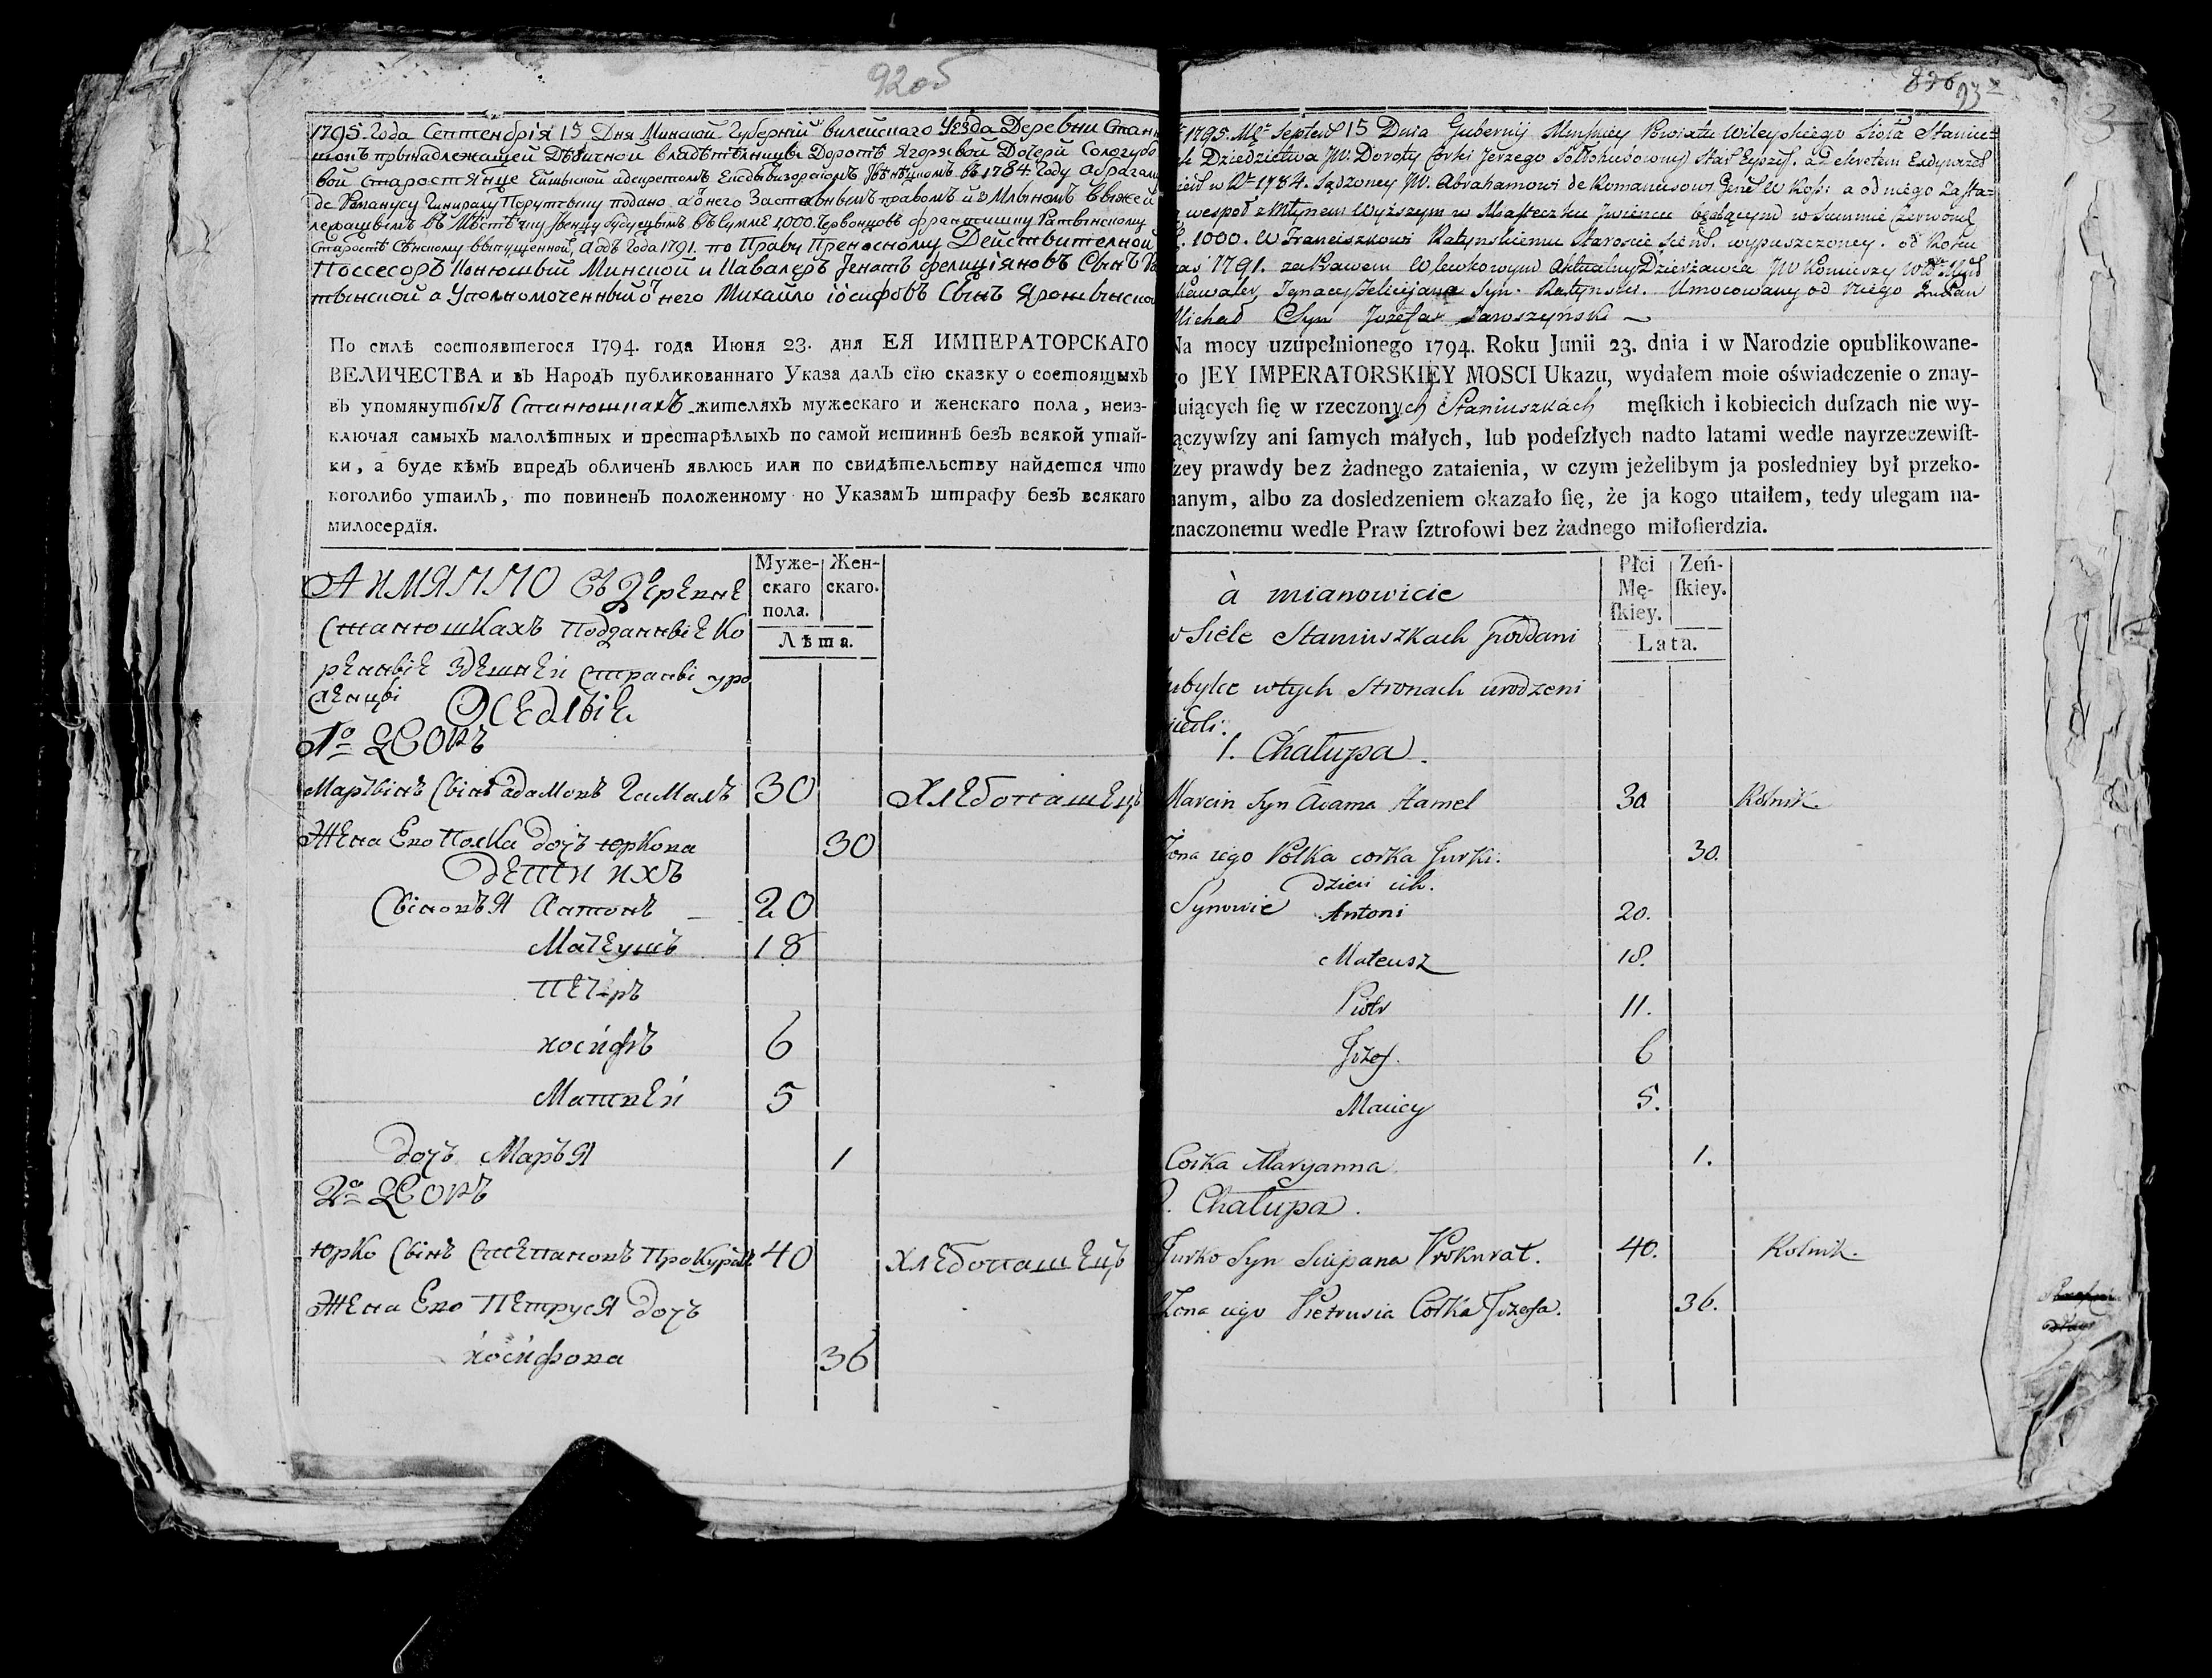 92об
1795 Года Септенбрія 15 Дня Минской Губерній вилейскаго Уезда Деревни Стан
шокъ прынадлежащей Дѣдичной владѣтелницы Доротѣ Ягоревой Дочери Сологубо
вой Старостянце Ейшиской адекретомъ Ексдывизорскомъ въ 1784 Году Абрагаму
де Романусу Гиниралу подано. а о него Заставнымъ правомъ и з Млыномъ вижей
лежащымъ въ Мѣстечку Ивенцу будуецымъ въ Сумме 1,000. Червонцовъ Францишку Ратынскому
Старостѣ выпущенной, а одъ Года 1791. по Праву Преноскому Действителной
Поссесоръ Конюшый Минской и Кавалеръ Игнатъ Фелиціяновъ Сынъ Ра
тынской а Уполномоченный о него Михайло Іосифовъ Сынъ Ярошынской
По силѣ состоявшегося 1794. года Июня 23. дня ЕЯ ИМПЕРАТОРСКАГО
ВЕЛИЧЕСТВА и въ Народъ публикованнаго Указа далъ сїю сказку о состоящыхъ
въ упомянутыхъ Станюшкахъ жителяхъ мужескаго и женскаго пола, неиз-
ключая самыхъ малолѣтныхъ и престарѣлыхъ по самой истиннѣ безъ всякой утай-
ки, а буде кѣмъ впредъ обличенъ явлюсь или по свидѣтельству найдется что
коголибо утаилъ, то повиненъ положенному по Указамъ штрафу безъ всякаго
милосердїя.
Муже-
скаго
пола.
Жен-
скаго.
Лѣта.
А ИМЯННО Въ Деревне
Станюшкахъ Подданые Ко
ренные здешней страны уро
жденцы Оседлые
1о Дворъ
Мартынъ Сынъ адамовъ Гамалъ 30 Хлебопашецъ
Жена Его Полка дочъ юркова 30
Дети ихъ
Сыновъя Антонъ 20
Матеушъ 18
Петръ
иосифъ 6
Матвей 5
дочъ Маръя 1
2о Дворъ
юрко Сынъ Степановъ Прокуратъ 40 Хлебопашецъ
Жена Его Петруся дочъ
иосифова 36
836 93
1795. Mca Septem 15 Dnia Gubernij Minskiey Powiatu Wileyskiego Sioła Staniu=
Dziedzictwa JW. Doroty Corki Jerzego Sołłohubowney Star Eyszys. a dekretem Exdywizor
w Rr 1784. Sądzoney JW. Abrahamowi de Romanusowi Gener W Ross: a od niego Zasta=
wespoł z Młynem Wyższym w Miasteczku Iwieńcu będącym w Summie Czerwonych
1000. W Franciszkowi Ratynskiemu Staroscie wypuszczoney. od Roku
zaś 1791. za Prawem Wlewkowym Aktualny Dzierżawca JW Koniuszy Wdtwa Minś
Kawaler, Ignacy Felicijana Syn. Ratynski. Umocowany od Niego
Michał Syn Jozefa Jaroszynski
Na mocy uzupełnionego 1794. Roku Junii 23. dnia i w Narodzie opublikowane-
go JEY IMPERATORSKIEY MOSCI Ukazu, wydałem moie oświadczenie o znay-
duiących ſię w rzeczonych Staniuszkach męſkich i kobiecich duſzach nie wy-
łączywſzy ani ſamych małych, lub podeſzłych nadto latami wedle nayrzeczewiſt-
ſzey prawdy bez żadnego zataienia, w czym jeżelibym ja posledniey był przeko-
nanym, albo za dosledzeniem okazało ſię, że ja kogo utaiłem, tedy ulegam na-
znaczonemu wedle Praw ſztrofowi bez żadnego miłoſierdzia.
Płci
Mę-
ſkiey.
Zeń-
ſkiey.
Lata.
à mianowicie
w Siele Staniuszkach poddani
w tych Stronach urodzeni
1. Chałupa.
Marcin Syn Adama Hamel 30 Rolnik
Żona iego Polka corka Jurki. 30.
dzieci ich.
Synowie Antoni 20.
Mateusz 18.
Piotr 11.
Jozef. 6
Maciey 5.
Corka Maryanna 1.
2. Chałupa.
Jurko Syn Sciepana Prokurat. 40. Rolnik.
Żona iego Pietrusia Corka Jozefa. 36.